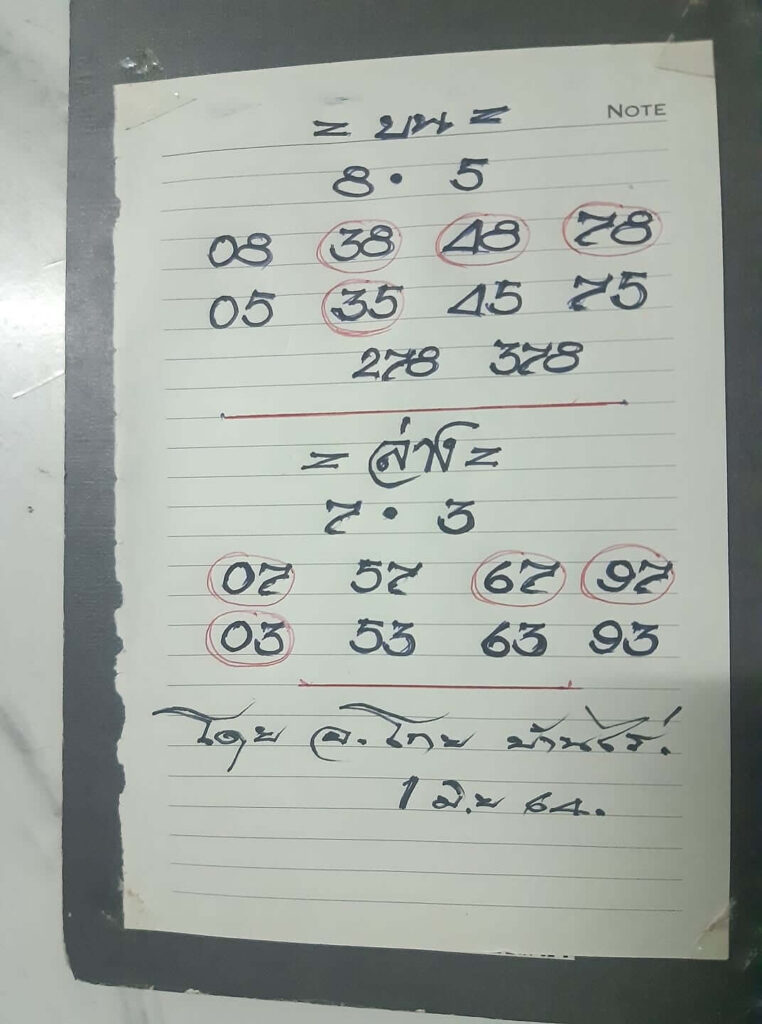 NOTE
= บน =
8 • 5
08 38 48 78
05 35 45 75
278 378
= ล่าง =
7 • 3
07 57 67 97
03 53 63 93
โดย อ. ไทย บ้านไร่.
1 มิ.ย 64.